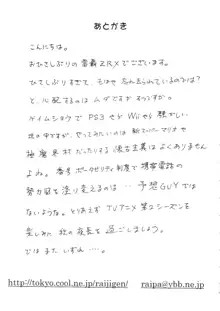 あとがき
こんにちは。
おひさしぶりの 雷覇ZRXでございます。
ひさしぶりすぎて、もはや 忘れ去られているのでは?
と、心配するのは ムダですが そうですか。
ゲイムショウで PS3 やら Wii やら 騒がしい
世の中ですが、やってみたいのは 新スーパーマリオや
極魔界村だったりする 懐古主義はよくありません
よね。番号ポータビリティ制度で携帯電話の
勢力図を塗り変えるのは … 予想GUYでは
ないような。とりあえず TVアニメ 第2シーズンを
楽しみに 秋の夜長を 過ごしましょう。
ではまた いずれ ‥‥。
http://tokyo.cool.ne.jp/raijigen/ raipa@ybb.ne.jp